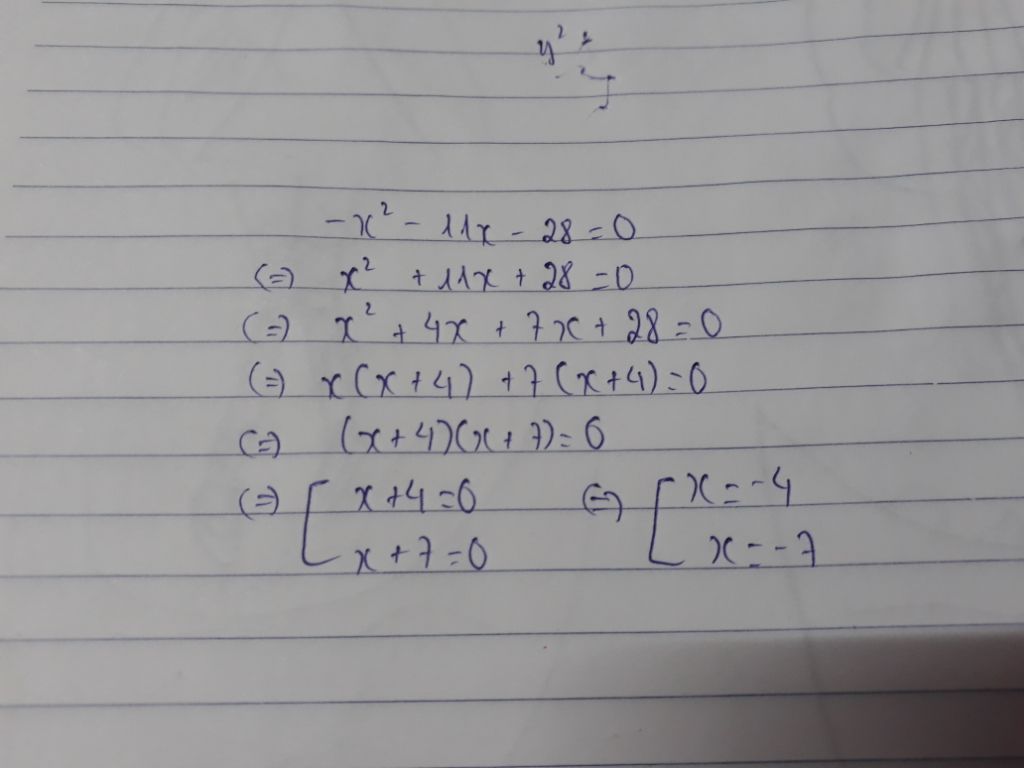 y²
-x² - 11x - 28 = 0
(=) x² + 11x + 28 = 0
(=) x² + 4x + 7x + 28 = 0
(=) x(x + 4) + 7(x + 4) = 0
(=) (x + 4)(x + 7) = 0
(=) [ x + 4 = 0 (=) [ x = -4
x + 7 = 0 x = -7